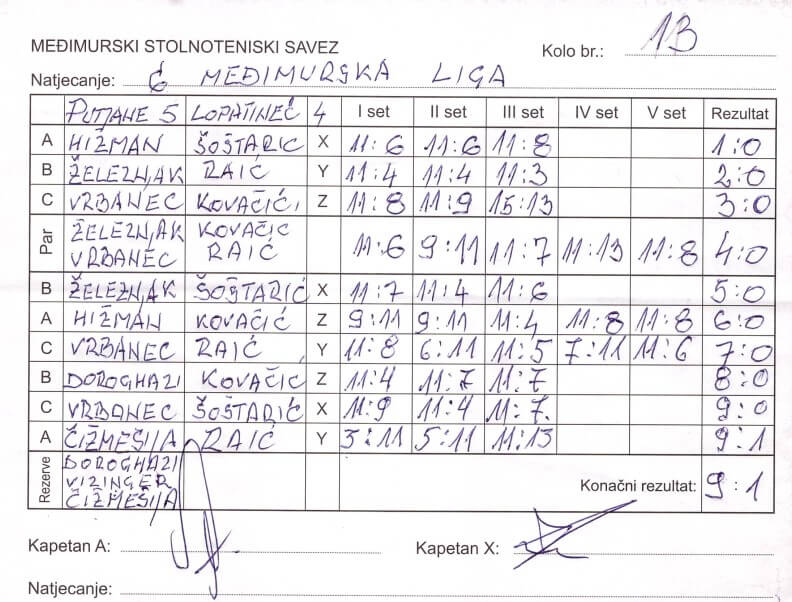 MEĐIMURSKI STOLNOTENISKI SAVEZ
Kolo br.: 13
Natjecanje: Ć MEĐIMURSKA LIGA
PUTJANE 5 LOPATINEĆ 4 I set II set III set IV set V set Rezultat
A HIŽMAN ŠOŠTARIC X 11:6 11:6 11:8 1:0
B ŽELEZNJAK RAIĆ Y 11:4 11:4 11:3 2:0
C VRBANEC KOVAČIĆ Z 11:8 11:9 15:13 3:0
Par ŽELEZNJAK KOVAČIC
VRBANEC RAIĆ 11:6 9:11 11:7 11:13 11:8 4:0
B ŽELEZNJAK ŠOŠTARIĆ X 11:7 11:4 11:6 5:0
A HIŽMAN KOVAČIĆ Z 9:11 9:11 11:4 11:8 11:8 6:0
C VRBANEC RAIĆ Y 11:8 6:11 11:5 7:11 11:6 7:0
B DOROGHAZI KOVAČIC Z 11:4 11:7 11:7 8:0
C VRBANEC ŠOŠTARIĆ X 11:9 11:4 11:7. 9:0
A ČIŽMEŠIJA RAIĆ Y 3:11 5:11 11:13 9:1
Rezerve DOROGHAZI
VIZINGER
ČIŽMEŠIJA
Konačni rezultat: 9:1
Kapetan A: Kapetan X:
Natjecanje: